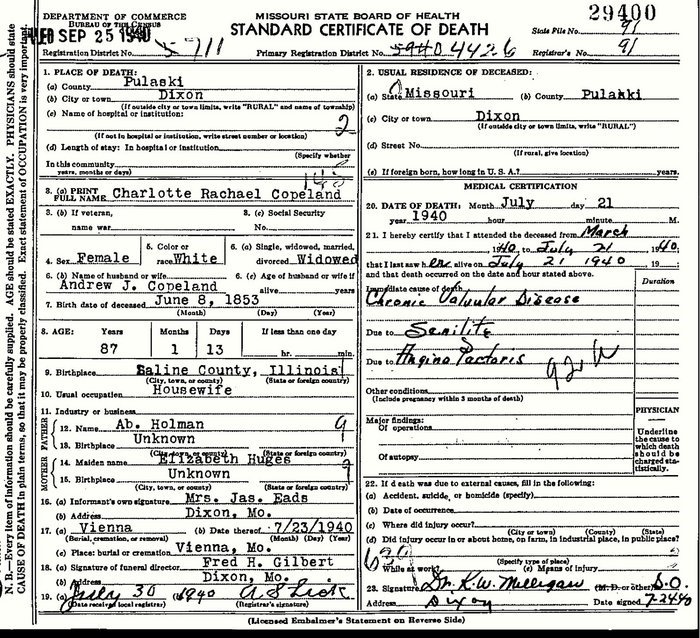 DEPARTMENT OF COMMERCE
BUREAU OF THE CENSUS
MISSOURI STATE BOARD OF HEALTH
STANDARD CERTIFICATE OF DEATH
29400
State File No. 91
SEP 25 1940
Registration District No. 5711
Primary Registration District No. 5940 4426
Registrar's No. 91
N. B.—Every item of information should be carefully supplied. AGE should be stated EXACTLY. PHYSICIANS should state
CAUSE OF DEATH in plain terms, so that it may be properly classified. Exact statement of OCCUPATION is very important.
1. PLACE OF DEATH:
(a) County Pulaski
(b) City or town Dixon
(If outside city or town limits, write "RURAL" and name of township)
(c) Name of hospital or institution:
2
(If not in hospital or institution, write street number or location)
(d) Length of stay: In hospital or institution
(Specify whether
In this community
years, months or days)
3. (a) PRINT FULL NAME Charlotte Rachael Copeland
3. (b) If veteran, name war
3. (c) Social Security No.
4. Sex Female
5. Color or race White
6. (a) Single, widowed, married, divorced Widowed
6. (b) Name of husband or wife Andrew J. Copeland
6. (c) Age of husband or wife if alive years
7. Birth date of deceased June 8, 1853
(Month) (Day) (Year)
8. AGE: Years Months Days If less than one day
87 1 13 hr. min.
9. Birthplace Saline County, Illinois
(City, town, or county) (State or foreign country)
10. Usual occupation Housewife
11. Industry or business
FATHER
12. Name Ab. Holman 9
13. Birthplace Unknown
(City, town, or county) (State or foreign country)
MOTHER
14. Maiden name Elizabeth Huges 9
15. Birthplace Unknown
(City, town, or county) (State or foreign country)
16. (a) Informant's own signature Mrs. Jas. Eads
(b) Address Dixon, Mo.
17. (a) Vienna (b) Date thereof 7/23/1940
(Burial, cremation, or removal) (Month) (Day) (Year)
(c) Place: burial or cremation Vienna, Mo.
18. (a) Signature of funeral director Fred H. Gilbert
(b) Address Dixon, Mo.
19. (a) July 30 1940
(Date received local registrar) (Registrar's signature)
2. USUAL RESIDENCE OF DECEASED:
(a) State Missouri (b) County Pulaski
(c) City or town Dixon
(If outside city or town limits, write "RURAL")
(d) Street No.
(If rural, give location)
(e) If foreign born, how long in U. S. A.? years
MEDICAL CERTIFICATION
20. DATE OF DEATH: Month July day 21
year 1940 hour minute M.
21. I hereby certify that I attended the deceased from March
, 1940 to July 21 1940;
that I last saw her alive on July 21 1940 19
and that death occurred on the date and hour stated above.
Duration
Immediate cause of death
Chronic Valvular Disease
Due to Senility
Due to Angina Pectoris
92 W
Other conditions
(Include pregnancy within 3 months of death)
PHYSICIAN
Major findings:
Of operations
Of autopsy
Underline the cause to which death should be charged statistically.
22. If death was due to external causes, fill in the following:
(a) Accident, suicide, or homicide (specify)
(b) Date of occurrence
(c) Where did injury occur?
(City or town) (County) (State)
(d) Did injury occur in or about home, on farm, in industrial place, in public place?
(Specify type of place)
While at work (e) Means of injury
23. Signature Dr. K.W. Milligan (M. D. or other) D.O.
Address Dixon Date signed 7-24-40
(Licensed Embalmer's Statement on Reverse Side)